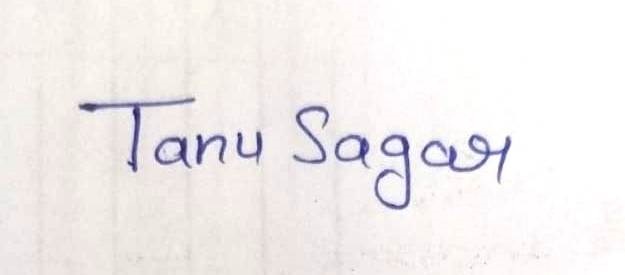 Tanu Sagar